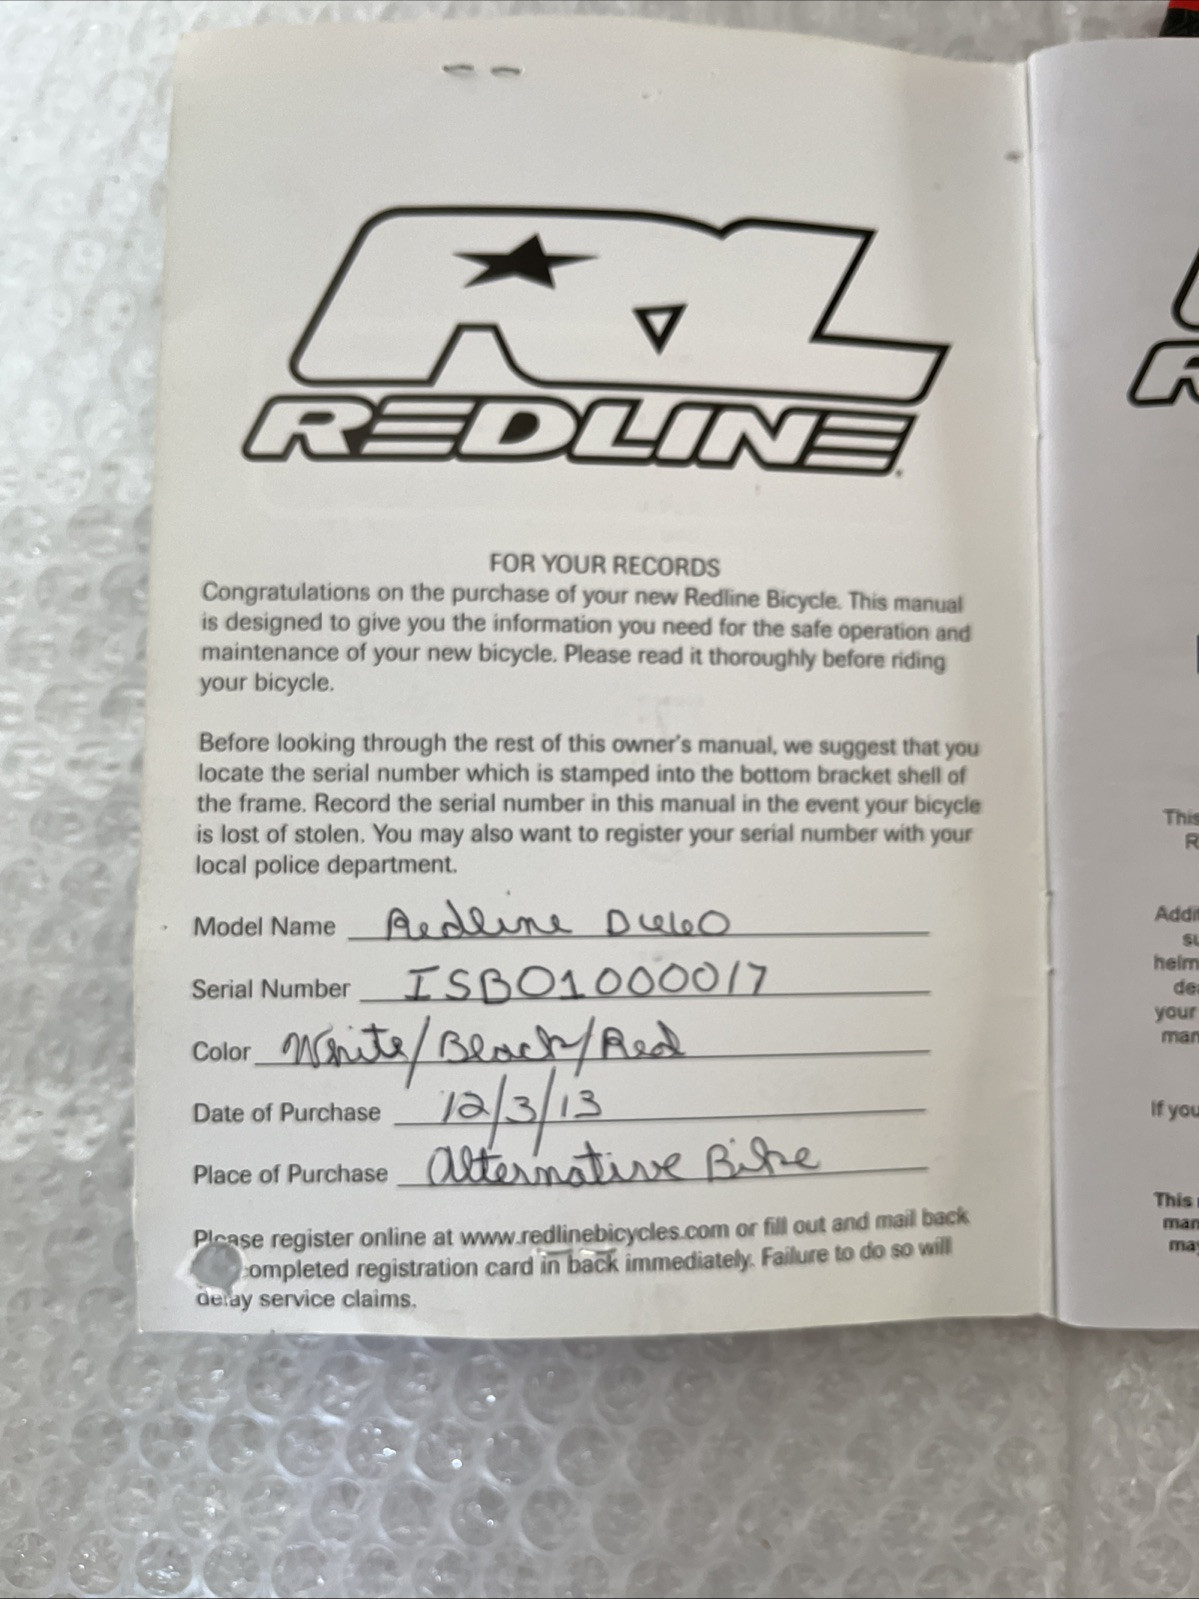 RL
REDLINE
FOR YOUR RECORDS
Congratulations on the purchase of your new Redline Bicycle. This manual
is designed to give you the information you need for the safe operation and
maintenance of your new bicycle. Please read it thoroughly before riding
your bicycle.
Before looking through the rest of this owner's manual, we suggest that you
locate the serial number which is stamped into the bottom bracket shell of
the frame. Record the serial number in this manual in the event your bicycle
is lost of stolen. You may also want to register your serial number with your
local police department.
Model Name Redline
Serial Number ISB01000017
Color White/Black/Red
Date of Purchase 12/3/13
Place of Purchase Alternative Bike
Please register online at www.redlinebicycles.com or fill out and mail back
completed registration card in back immediately. Failure to do so will
delay service claims.
This
R
Addi
su
helm
de
your
man
If you
This
man
may